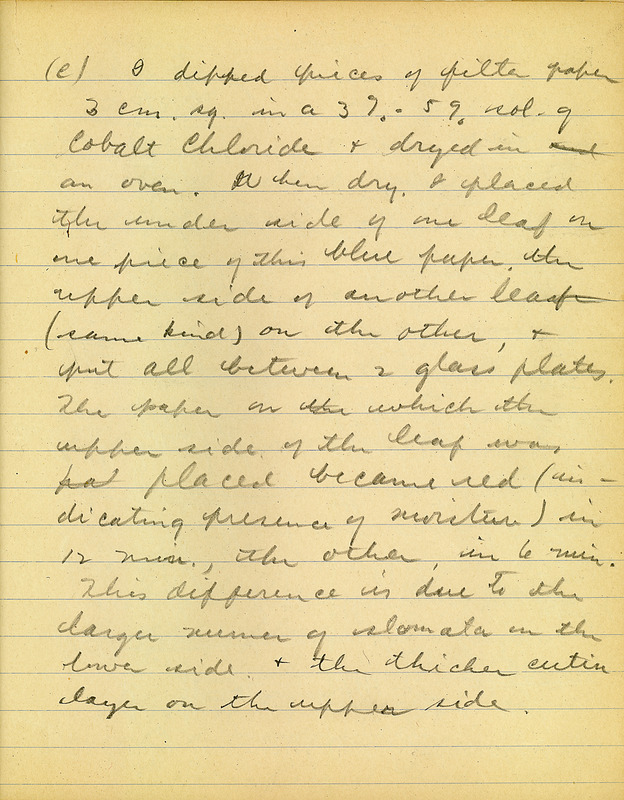 (e) I dipped pieces of filter paper
3 cm. sq. in a 3% - 5% sol. of
Cobalt Chloride + dryed in
an oven. When dry, I placed
the under side of one leaf on
one piece of this blue paper, the
upper side of another leaf
(same kind) on the other, +
put all between 2 glass plates.
The paper on the which the
upper side of the leaf was
placed became red (in-
dicating presence of moisture) in
12 min., the other, in 6 min.
This difference is due to the
larger numer of stomata on the
lower side + the thicker cutin
layer on the upper side.